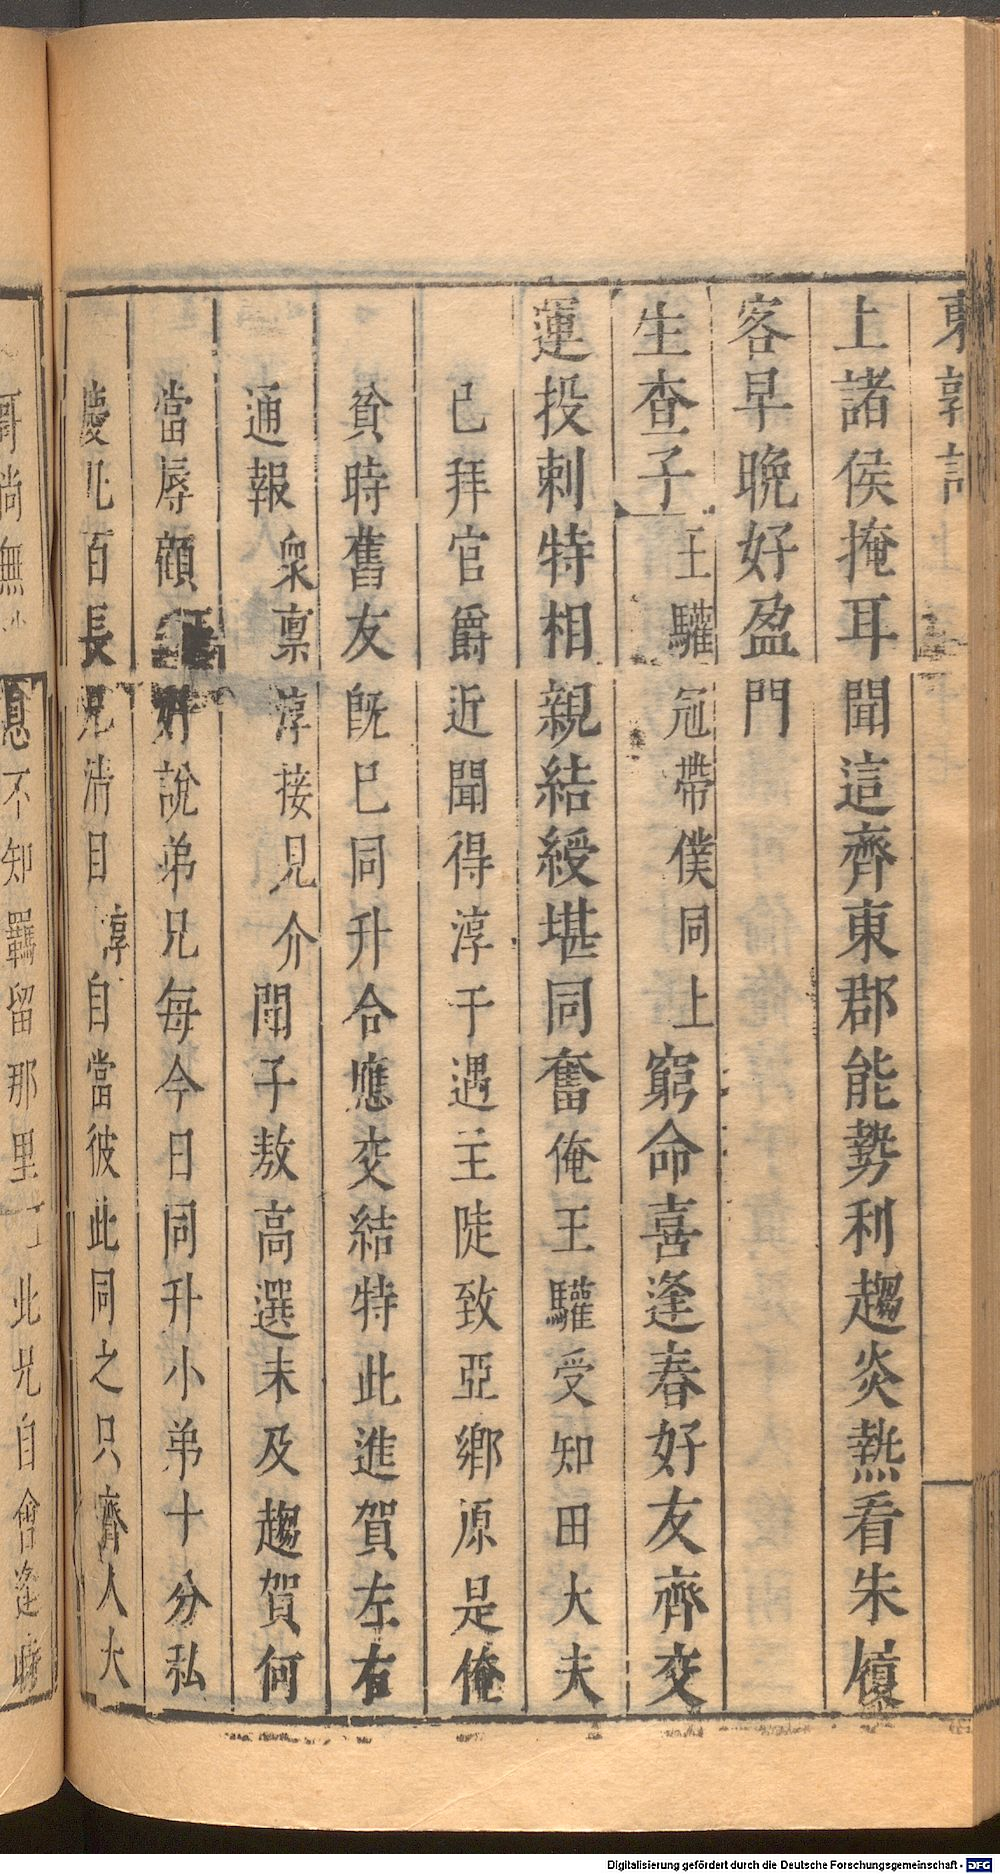 東郭記
上諸侯掩耳聞這齊東郡能勢利趨炎熱看朱履
客早晚好盈門
生查子王驩冠帶僕同上窮命喜逢春好友齊交
運投刺特相親結綬堪同奮俺王驩受知田大夫
已拜官爵近聞得淳于遇主陡致亞鄉原是俺
貧時舊友旣已同升合應交結特此進賀左右
通報衆稟淳接見介聞子敖高選未及趨賀何
當辱顧好說弟兄每今日同升小弟十分私
慶凡百長兄淸目淳自當彼此同之只齊人大
哥尚無
息不知羈留那里此兄自會逢時
Digitalisierung gefördert durch die Deutsche Forschungsgemeinschaft - DFG